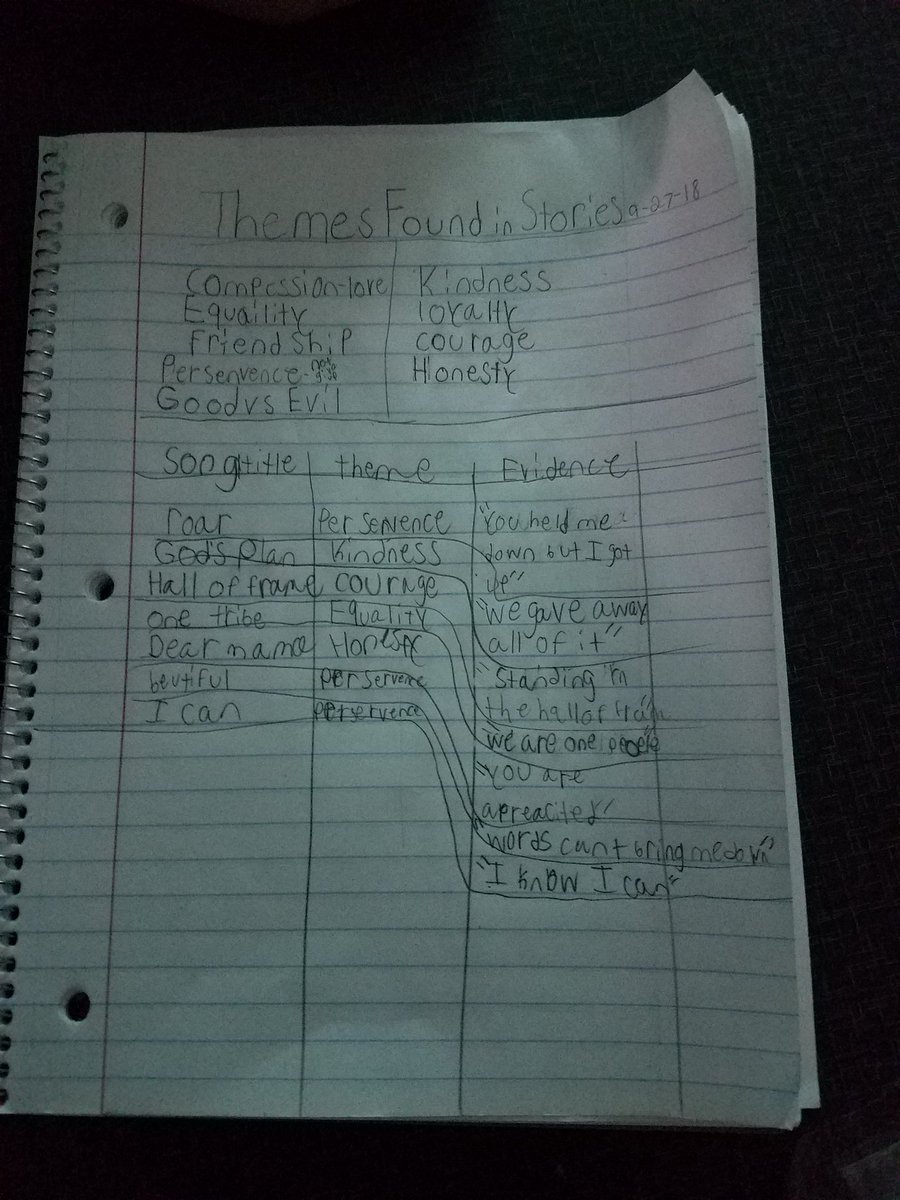 Themes Found in Stories 9-27-18
Compassion-love Kindness
Equaility loyalty
Friendship courage
Persenvence- Honesty
Good vs Evil
Soog title theme Evidence
roar Persenvence "You held me
God's plan Kindness down but I got
Hall of frame courage up"
one tribe Equality "we gave away
Dear mama Honesty all of it"
beutiful perservence "Standing in
I can perservence the hall of
we are one people
"You are
apreacited"
"words can't bring me down"
"I know I can"